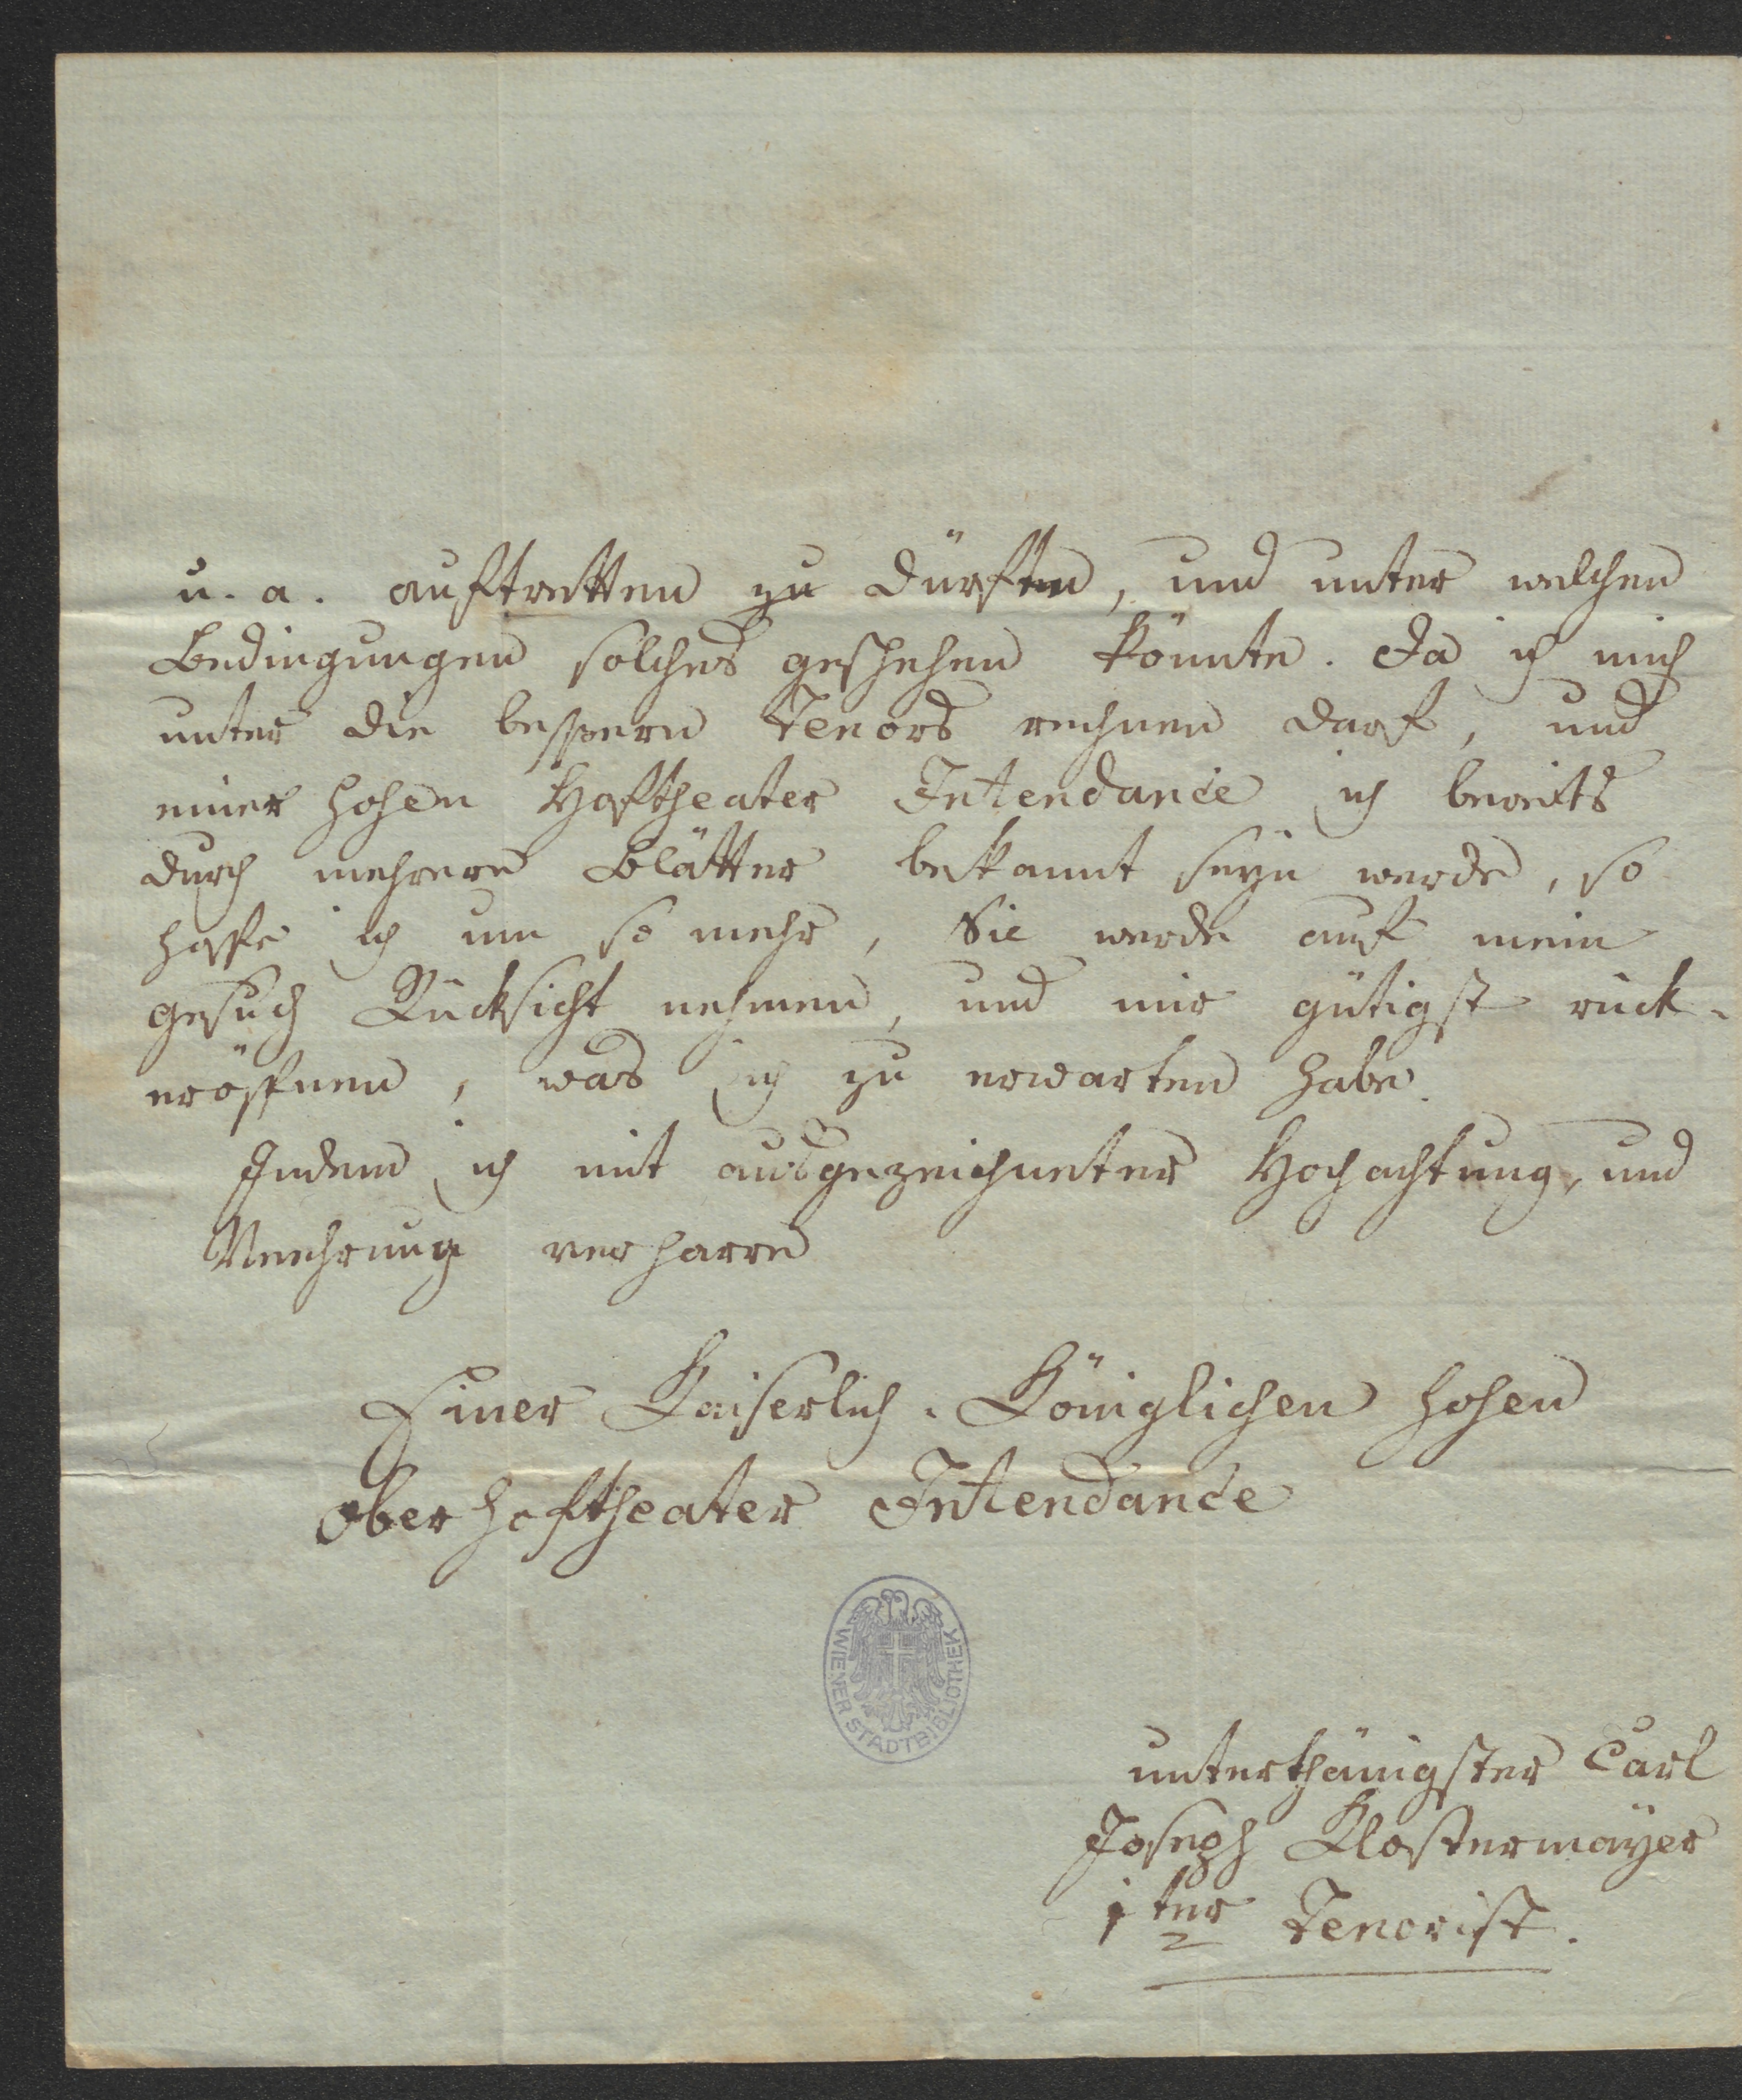 u. a. auftretten zu dürften, und unter welchen
Bedingungen solches geschehen könnte. Da ich mich
unter die bessern Tenors rechnen darf, und
einer hohen Hoftheater Intendance ich bereits
durch mehrere Blätter bekannt seyn werde, so
hoffe ich um so mehr, Sie werde auf mein
gesuch Rücksicht nehmen, und mir gütigst rück-
eröffnen, was ich zu erwarten habe.
Indem ich mit ausgezeichneter Hochachtung, und
Verehrung verharre
Einer Kaiserlich-Königlichen hohen
Oberhoftheater Intendance
WIENER STADTBIBLIOTHEK
unterthänigster Carl
Joseph Klostermayer
1ter Tenorist.